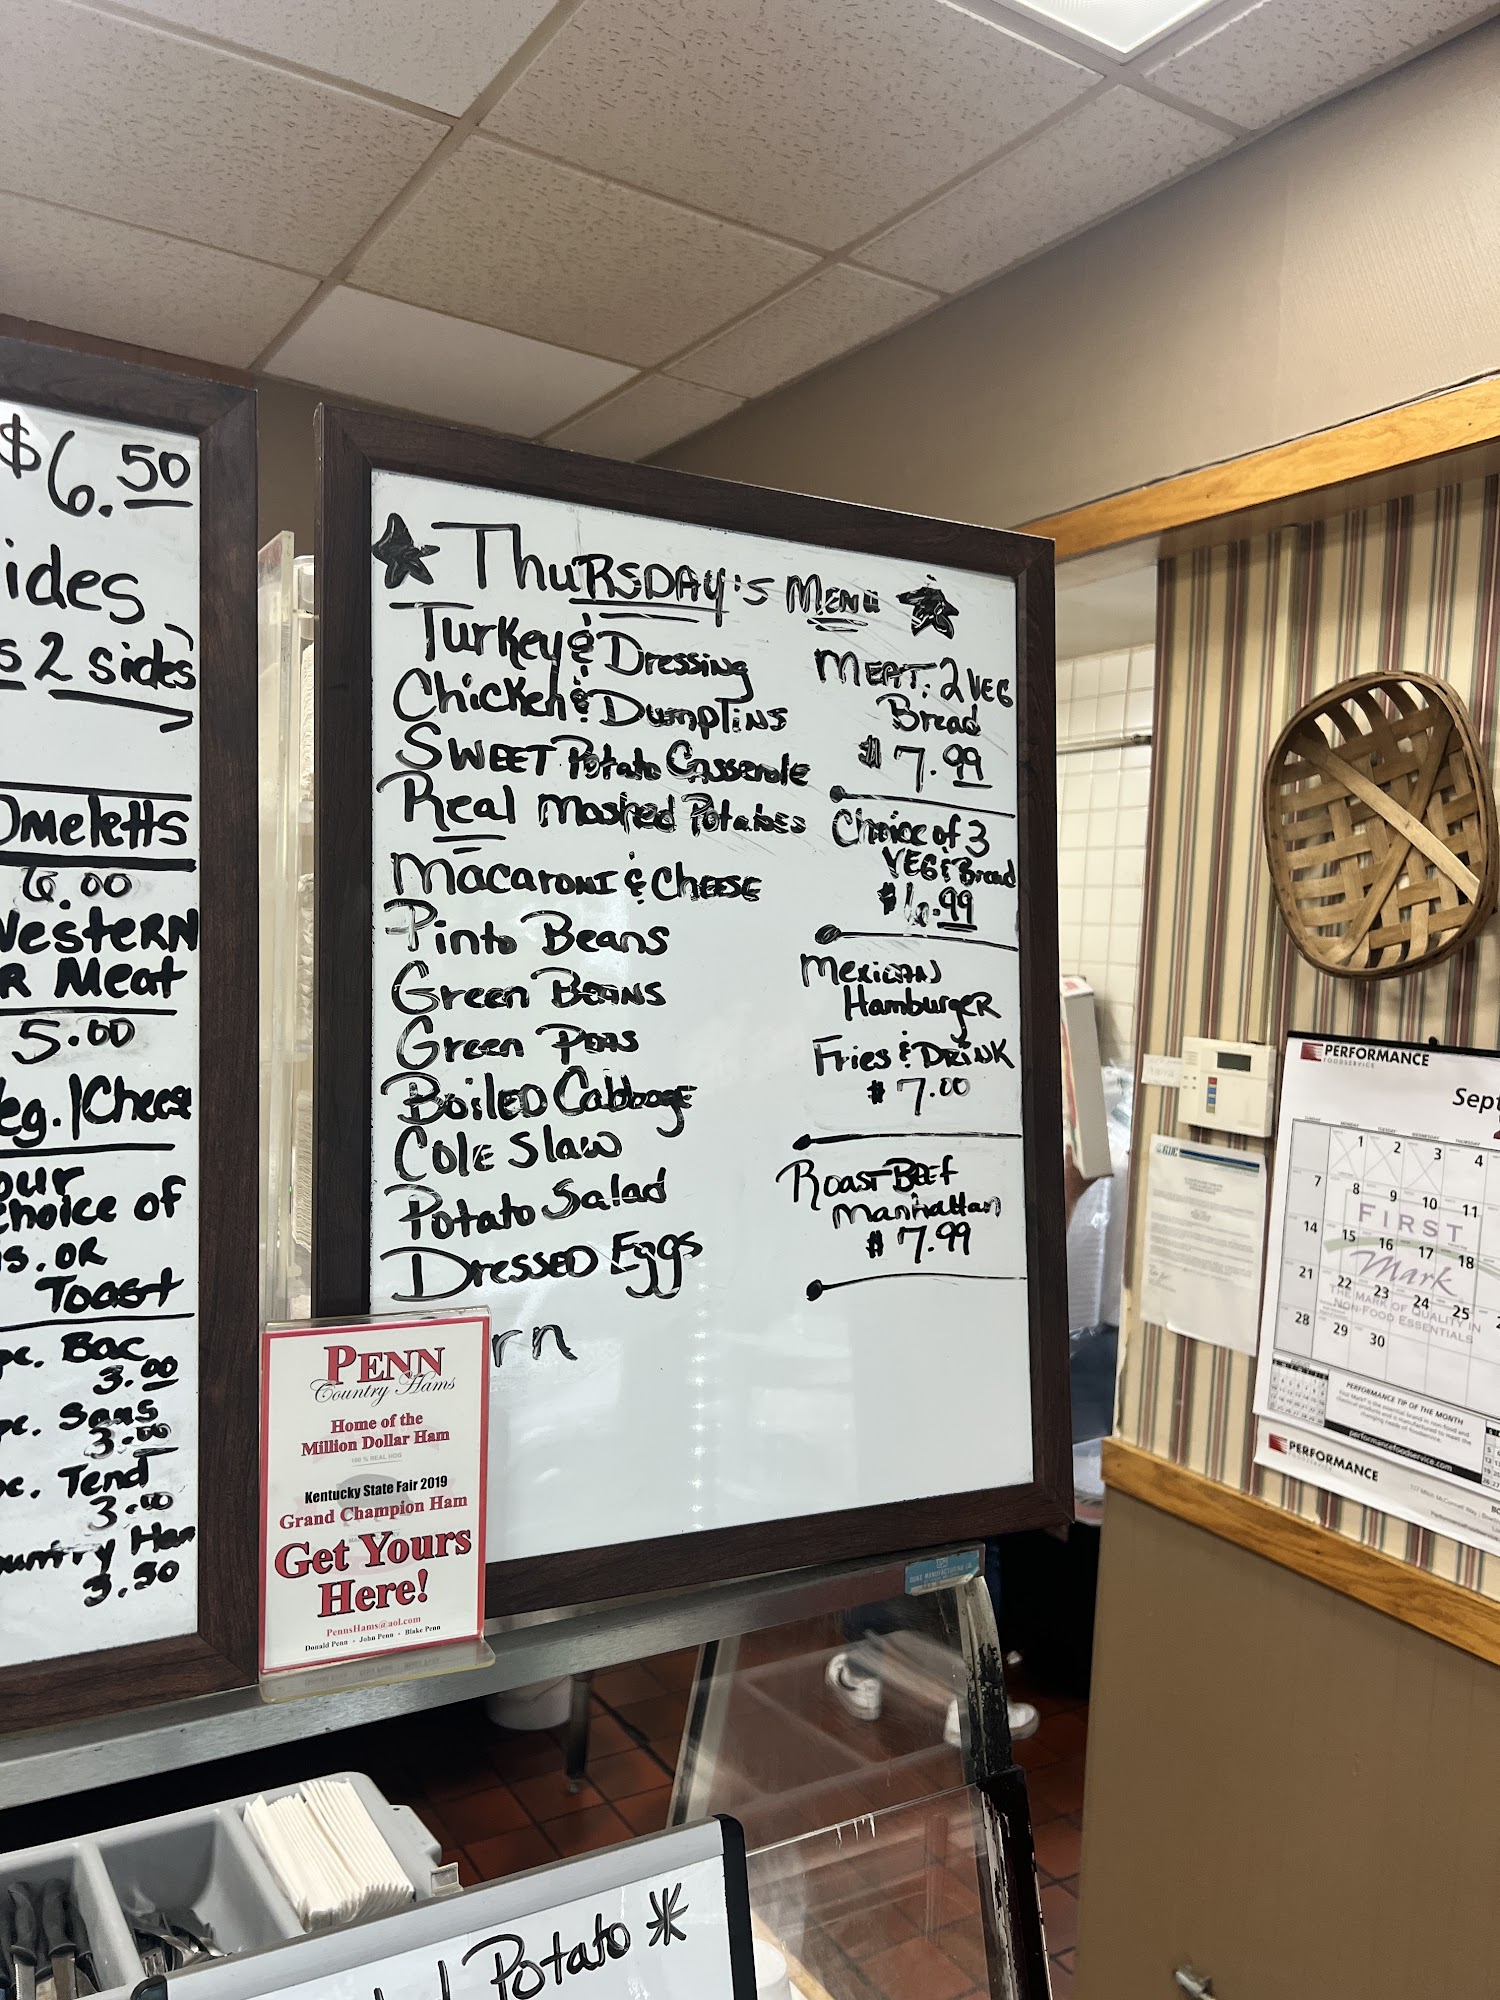 $6.50
ides
s 2 sides
Omeletts
6.00
Western
R Meat
5.00
eg./Cheese
our
hoice of
s. OR
Toast
pc. Bac
3.00
pc. Saus
3.00
pc. Tend
3.00
ountry Ham
3.50
Thursday's Menu
Turkey & Dressing
Chicken & Dumplins
Sweet Potato Casserole
Real Mashed Potatoes
Macaroni & Cheese
Pinto Beans
Green Beans
Green Peas
Boiled Cabbage
Cole Slaw
Potato Salad
Dressed Eggs
rn
Meat. 2 Veg
Bread
$7.99
Choice of 3
Veg & Bread
$6.99
Mexican
Hamburger
Fries & Drink
$7.00
Roast Beef
Manhattan
$7.99
PENN
Country Hams
Home of the
Million Dollar Ham
100 % REAL HOG
Kentucky State Fair 2019
Grand Champion Ham
Get Yours
Here!
PennsHams@aol.com
Donald Penn • John Penn • Blake Penn
Potato *
PERFORMANCE
FOODSERVICE
Sept
1 2 3 4
7 8 9 10 11
14 15 16 17 18
21 22 23 24 25
28 29 30
FIRST
Mark
THE MARK OF QUALITY IN
NON-FOOD ESSENTIALS
PERFORMANCE TIP OF THE MONTH
performancefoodservice.com
PERFORMANCE
FOODSERVICE